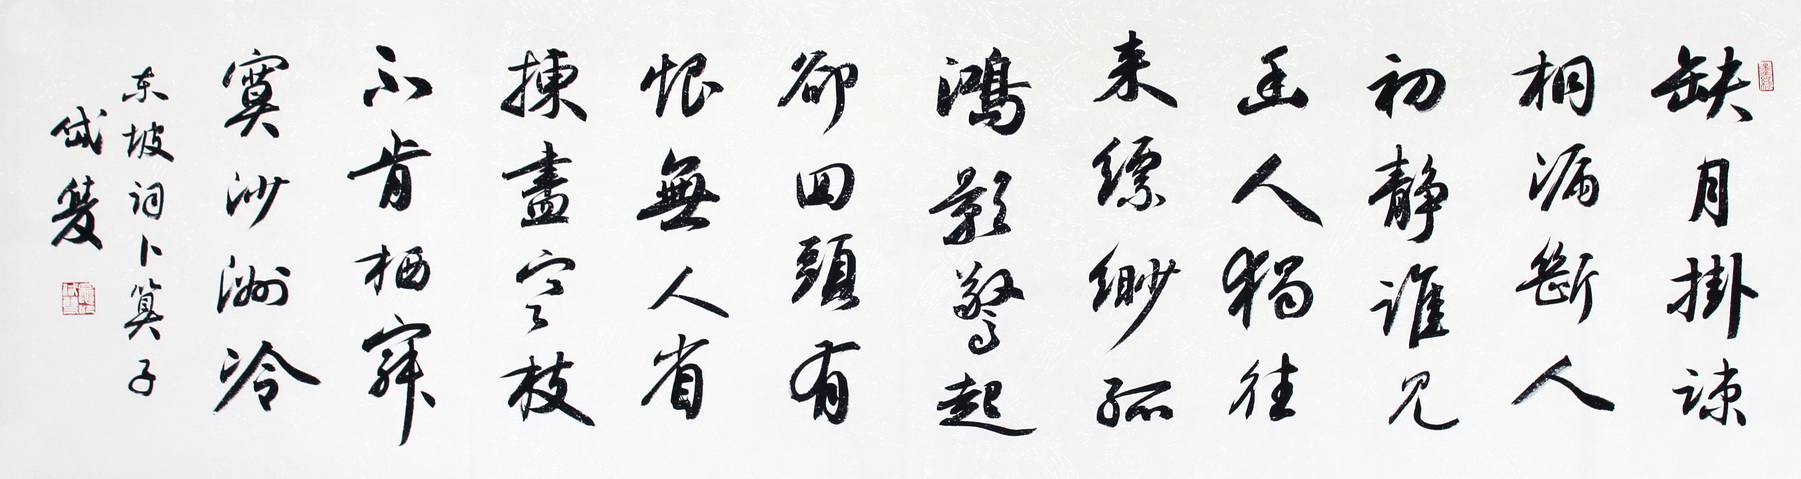 缺月掛疎
桐漏斷人
初靜誰見
幽人獨往
来縹緲孤
鴻影驚起
卻回頭有
恨無人省
揀盡寒枝
不肯栖寂
寞沙洲冷
东坡词卜算子
岱